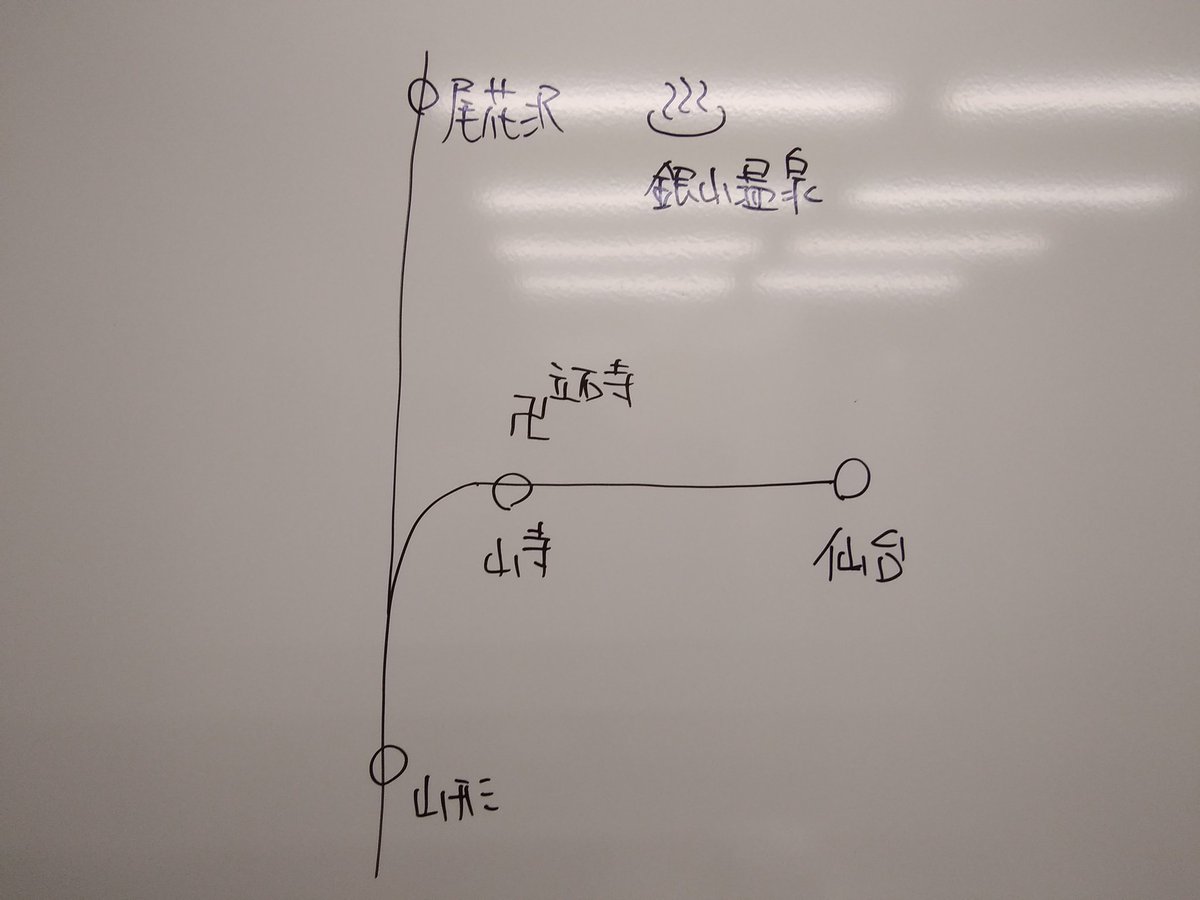 尾花沢
銀山温泉
立石寺
卍
山寺
仙台
山形